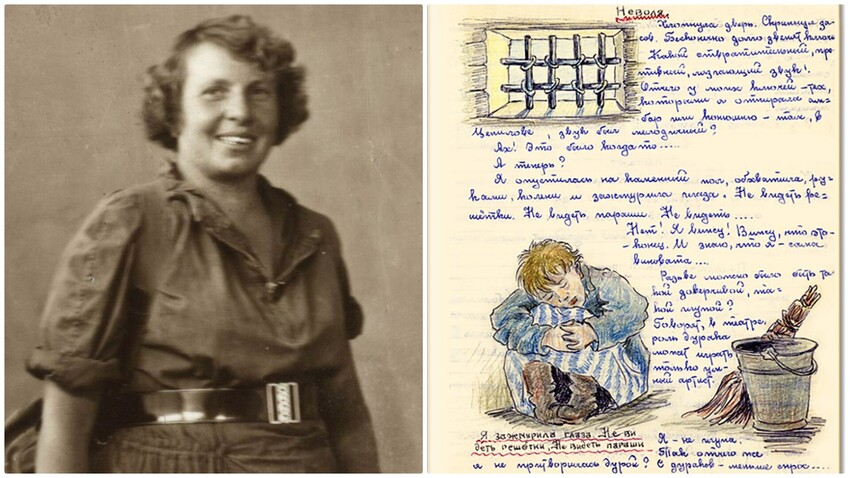 Неволя
Хлопнула дверь. Скрипнул за-
сов. Бесконечно долго звенят ключи
Какой отвратительный, про-
тивный, лязгающий звук!
Отчего у моих ключей – тех,
которыми я отпирала ам-
бар или комнаты – там, в
Цепилове, звук был мелодичный?
Ах! Это было когда-то.....
А теперь?
Я опустилась на каменный пол, обхватила ру-
ками колени и зажмурила глаза. Не видеть ре-
шётки. Не видеть параши. Не видеть....
Нет! Я вижу! Вижу, что это
- конец. И знаю, что я – сама
виновата....
Разве можно было быть та-
кой доверчивой, та-
кой глупой?
Говорят, в театре
роль дурака
может играть
только ум-
ный артист.
Я зажмурила глаза. Не ви
деть решётки, Не видеть параши
Я – не глупа.
Так отчего же
я не притворилась дурой? С дураков – меньше спрос....